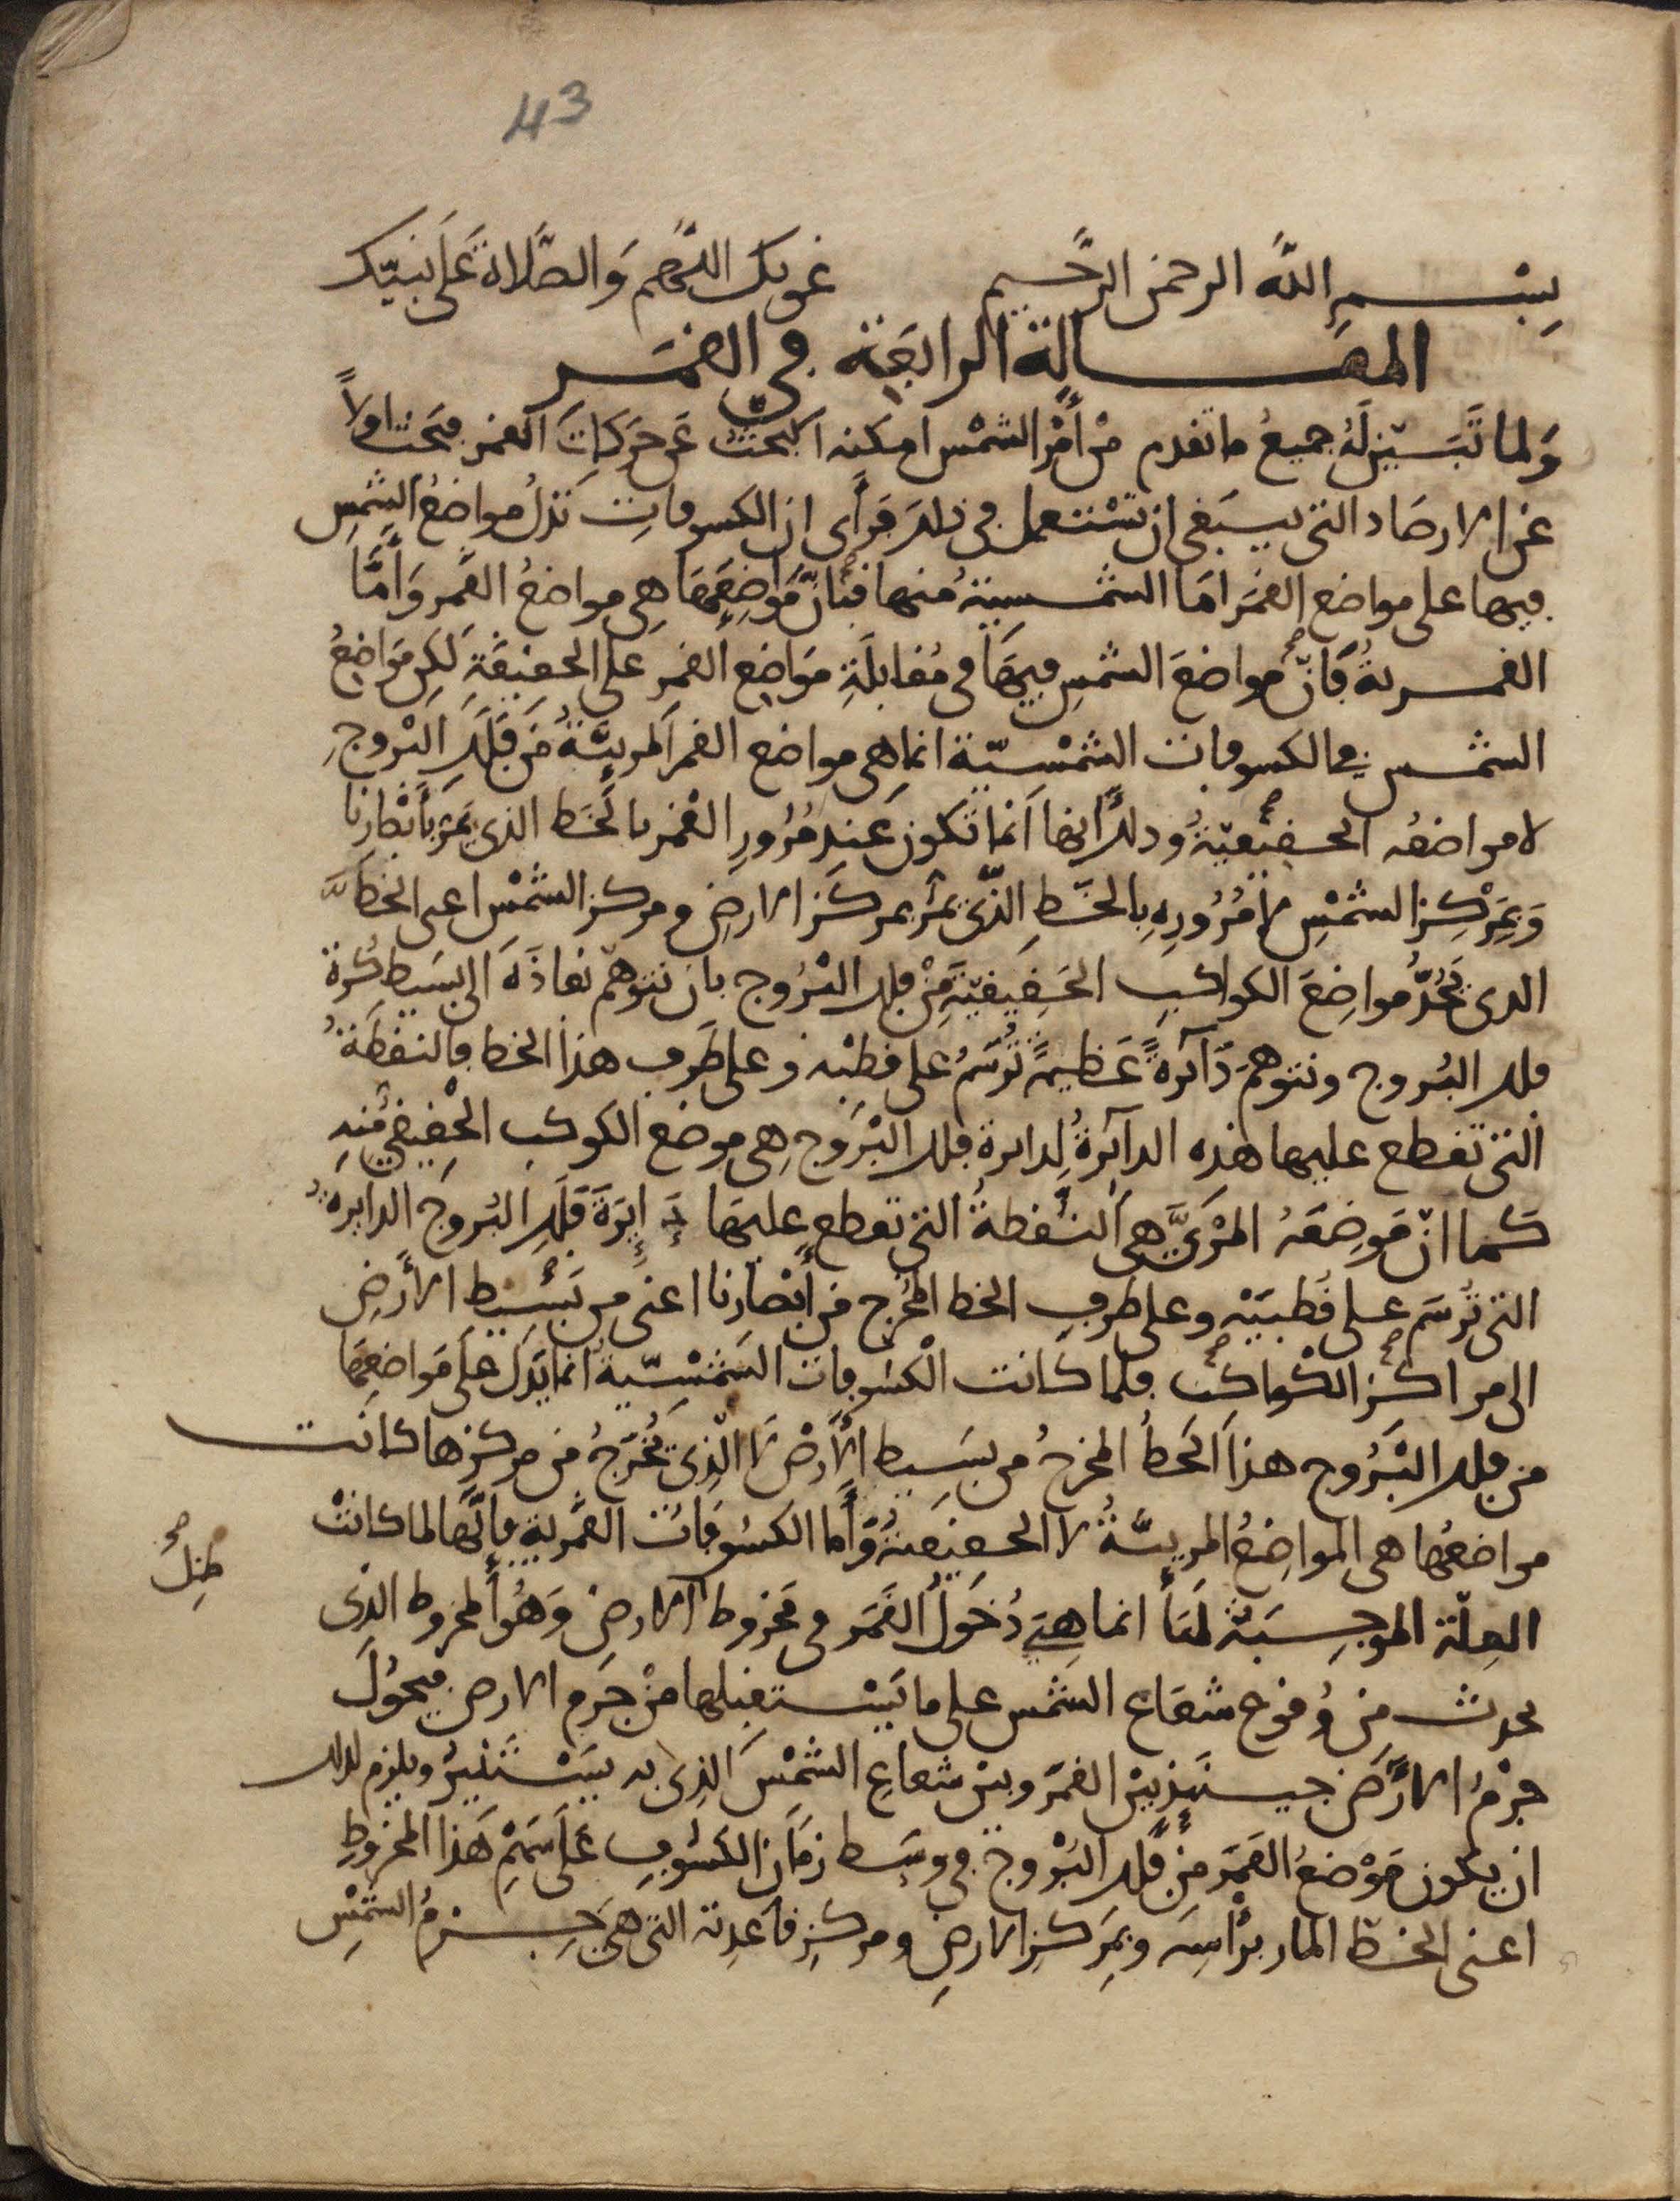 43
بِسْمِ اللَّه الرحمن الرَّحيم عونك اللَّهم وَالصَّلاة عَلى نبيّك
المقالة الرابعة في القمَر
وَلما تَبَيّن لَهُ جميعُ ما تقدم مْن أمْر الشمْس امكنه البحث عَن حَرَكاتِ القمر فبَحث اولاً
عن الارصَاد التي ينبَغي ان تسْتعمل في ذلك فرَأى ان الكسوفاتِ تدلُ مواضعُ الشمسِ
فيها على مواضع القمَر امَا الشمسية منها فبأنّ مَوَاضِعَهَا هِي مواضعُ القمَر وَأمَّا
القمرية فبأنّ مواضعَ الشمسِ فيهَا في مُقابلَةِ مَوَاضع القمر على الحقيقَةِ لكن مَوَاضعُ
الشمس في الكسوفات الشمْسيّة انما هي مواضع القمر المرئيَّةُ مَن فَلَك البْروجِ
لا مواضعُه الحقيقيّةُ وذلك انها انما تكون عَند مُرُورِ القمر بالخَط الذي يمَر بأبْصَارنا
وَبمَرْكز الشمْسِ لا مُرُورِهِ بالخَّطِ الذّي يمر بمركَز الارضِ ومركز الشمْس اعني الخط
الذي يَحُدُّ مواضِعَ الكواكبِ الحَقِيقيّةَ مَنْ فلك البْرُوج بان نتوهّم نفاذَه الى بسَيطِ كُرة
فلك البُروج ونتوهمَ دَآئرةً عَظيمةً تُرسَمُ على قطبْيه وعلى طَرف هذا الخط فالنقطَةُ
التي تقطع عليها هذِه الدآئرةُ لدايرة فلك البْروج هِي موضع الكوكبِ الحقِيقي منِه
كما انّ مَوضِعَهُ المَرْئيَّ هي النُّقطةُ التي تقطع عليهَا دَايِرَةَ فَلَكِ البُروجَ الدايرةُ
التي تُرسَم على قُطبَيْه وعلى طرفِ الخط المخْرج من أبْصَارنا اعني من بَسْيطِ الأرضِ
الى مراكز الكواكب فلما كانت الْكسُوفات الشَمْسّيةُ انما يَدَل عَلى مَواضِعِهَا
من فلك البْرُوج هذا الَخطُ المخرجُ من بسَيط الأَرْض لا الّذِى يخُرَجُ من مركزها كانَت
مواضعُها هي المواضِعُ المريَّةُ لا الحقيقيةُ وَأَما الكسُوفَاتُ القمَرية فإنَّها لما كانتْ
العِلّة الموجِبَةُ لهَا انما هيَ دُخَولُ القَمَر في مَخروط الارضِ وَهُوَ المخروط الذى
ظِلُ صح
يحدث من وُقوع شعَاع الشمْس على ما يَسْتقبلها منْ جَرم الارض فيحُولُ
جرْمُ الأرَض حينئذ بيْن القمَر وبيْن شعاعِ الشمْس الذِى به يسَتْنَيرُ ويلزم لذلك
ان يكون مَوْضعُ القمَر مِن فَلك البُروج في وسَط زَمَان الكسُوفِ عَلى سَمْتِ هَذا المخروطِ
اعني الخط المار برْأسِه وبمَركزِ الارضِ ومركزِ قاعدِته التي هي جِرمُ الشمْسِ